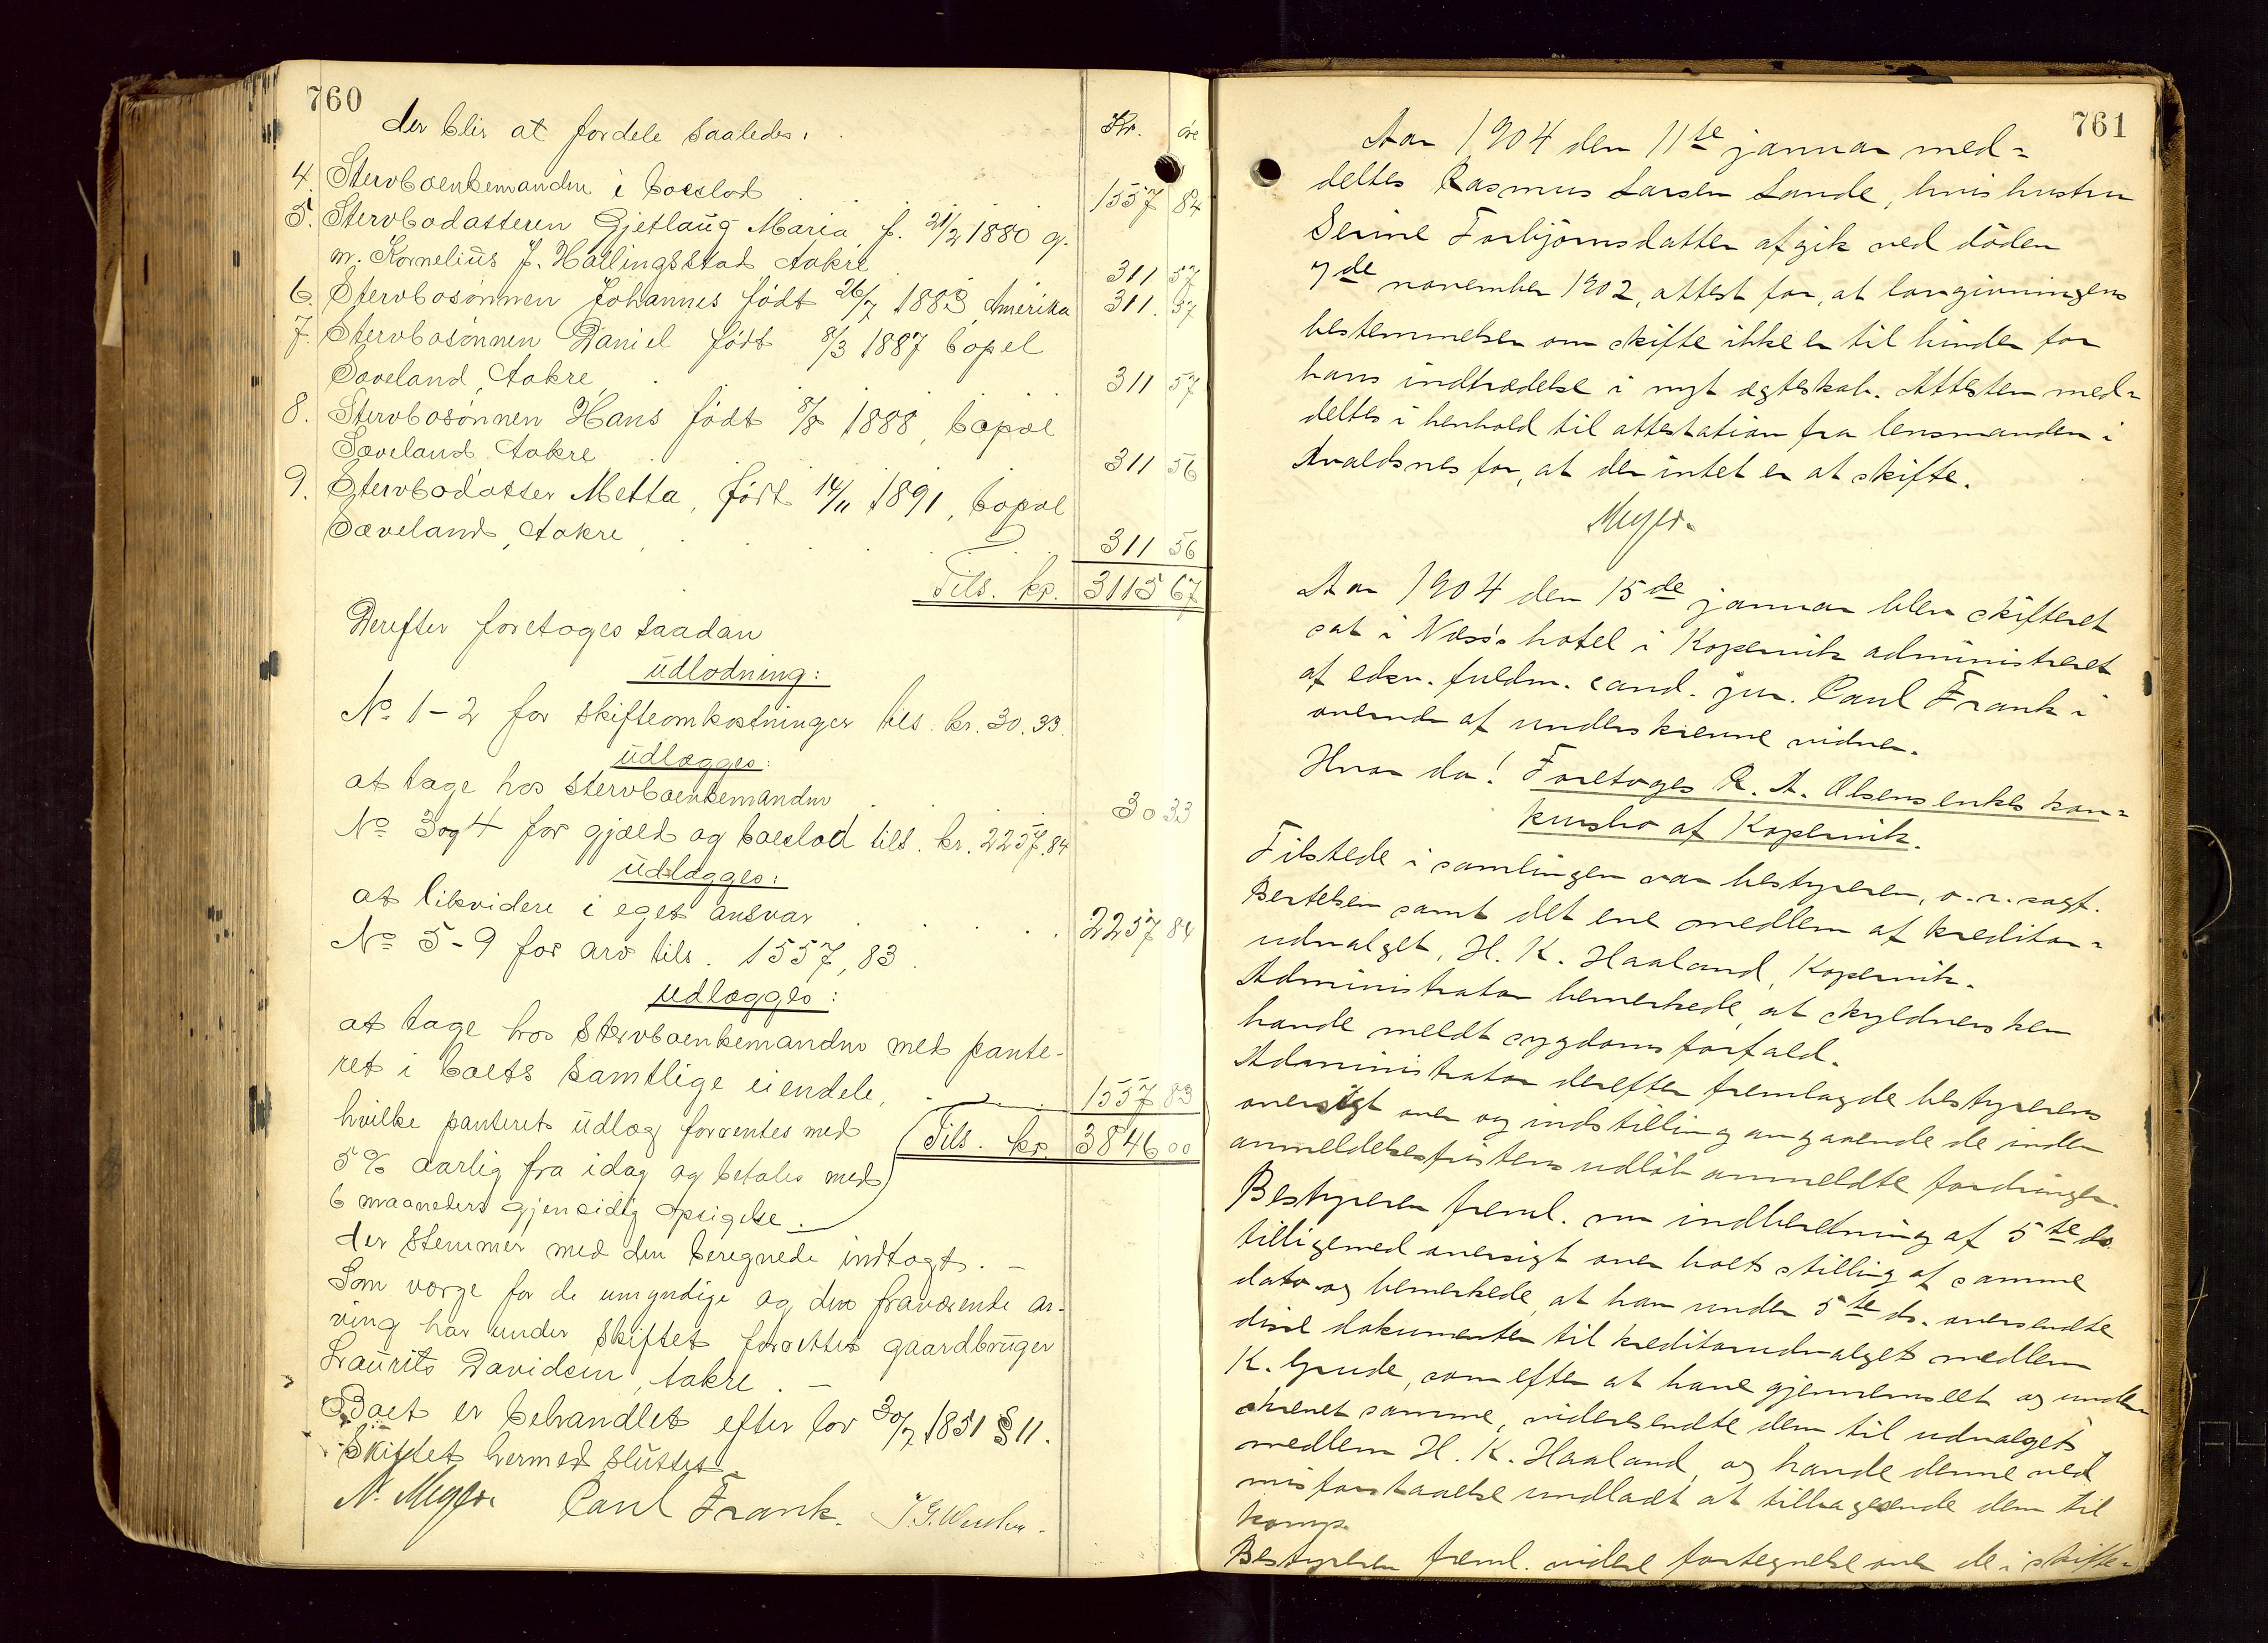 760
der blir at fordele saaledes:
Kr. øre
4. Stervboenkemanden i boeslod 1557 84
5. Stervbodatteren Gjetlaug Maria f. 21/2 1880 g.
m. Kornelius J. Hallingsstad Aakre 311 57
6. Stervbosønnen Johannes født 26/7 1883, Amerika 311. 57
7. Stervbosønnen Daniel født 8/3 1887 bopel
Sæveland, Aakre 311 57
8. Stervbosønnen Hans født 8/8 1888, bopæl
Sæveland Aakre 311 56
9. Stervbodatter Metta, født 14/11 1891, bopæl
Sæveland, Aakre 311 56
Tils. kr. 3115 67
Derefter foretoges saadan
udlodning:
No 1-2 for skifteomkostninger tils. kr. 30.33.
udlægges:
at tage hos stervboenkemanden 30 33
No 3 og 4 for gjæld og boeslod tils. kr. 2257.84
udlægges:
at likvidere i eget ansvar 2257 84
No 5-9 for arv tils. 1557,83.
udlægges:
at tage hos stervboenkemanden med pante-
ret i boets samtlige eiendele, 1557 83
hvilke panterets udlæg forrentes med Tils. kr. 3846 00
5% aarlig fra idag og betales med
6 maaneders gjensidig opsigelse.
der stemmer med den beregnede indtægt. —
Som værge for de umyndige og den fraværende ar-
ving har under skiftet forrettet gaardbruger
Laurits Davidsen, Aakre. —
Boet er behandlet efter lov 30/7 1851 § 11.
Skiftet hermed sluttet.
N. Meyer. Paul Frank.
761
Aar 1904 den 11te januar med-
deltes Rasmus Larsen Lande, hvis hustru
Serine Torbjørnsdatter afgik ved døden
7de november 1902, attest for, at lovgivningens
bestemmelser om skifte ikke er til hinder for
hans indtrædelse i nyt ægteskab. Attesten med-
deltes i henhold til attestation fra lensmanden i
Avaldsnes for, at der intet er at skifte.
Meyer.
Aar 1904 den 15de januar blev skifteret
sat i Næss's hotel i Kopervik administreret
af edsv. fuldm. cand. jur. Paul Frank i
overvær af underskrevne vidner.
Hvor da! Foretoges R. A. Olsens enkes kon-
kursbo af Kopervik.
Tilstede i samlingen var bestyreren, o.r.sagf.
Bertelsen samt det ene medlem af kreditor-
udvalget, H. K. Haaland, Kopervik.
Administrator bemerkede, at skyldnersken
havde meldt sygdomsforfald.
Administrator derefter fremlagde bestyrerens
oversigt over og indstilling angaaende de inden
anmeldelsesfristens udløb anmeldte fordringer.
Bestyreren freml. nu indberetning af 5te ds.
tilligemed oversigt over boets stilling af samme
dato og bemerkede, at han under 5te ds. oversendte
disse dokumenter til kreditorudvalgets medlem
K. Grude, som efter at have gjennemseet og under-
skrevet samme, videresendte dem til udvalgets
medlem H. K. Haaland, og havde denne ved
misforstaaelse undladt at tilbagesende dem til
komp.
Bestyreren freml. videre fortegnelse over de i skifte-